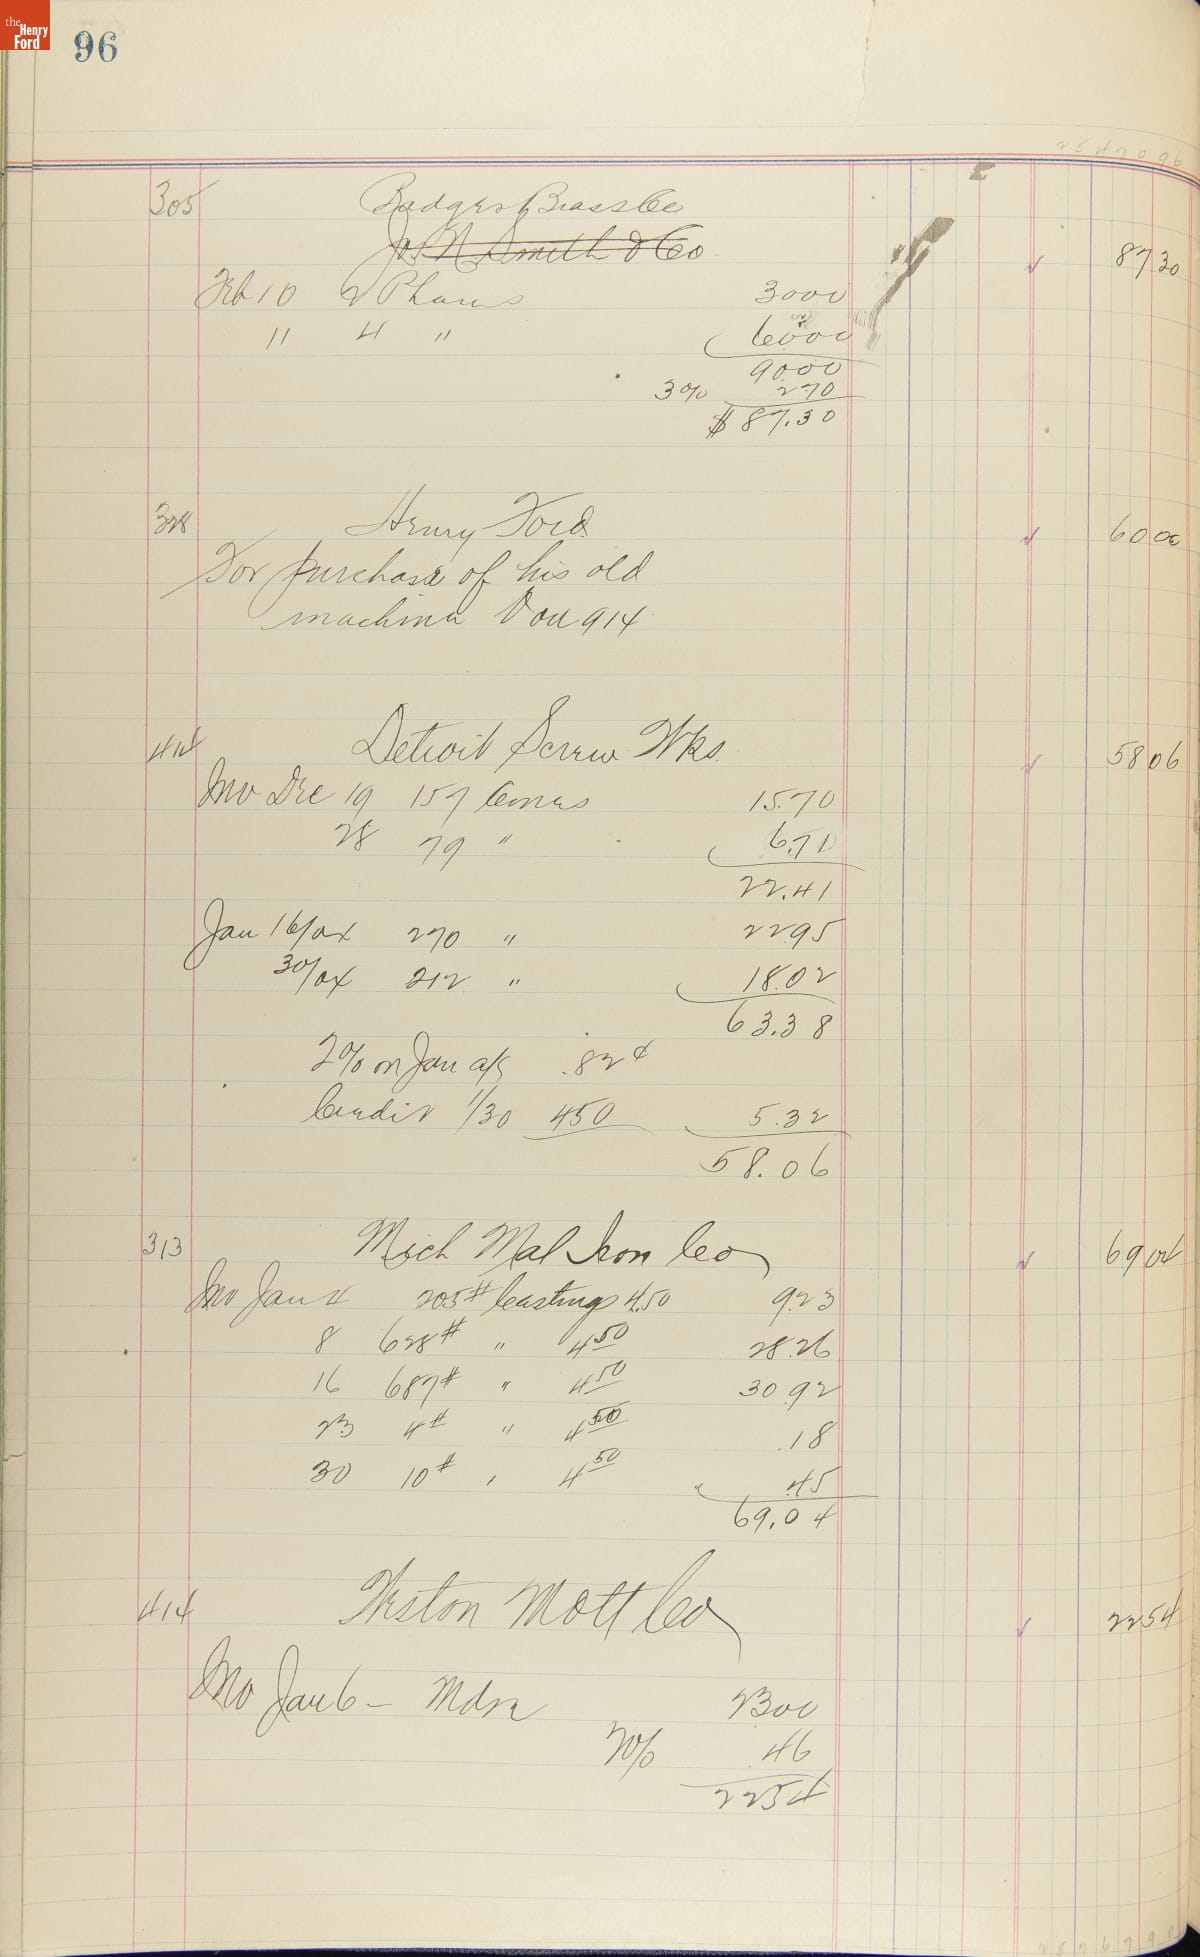 the Henry Ford
96
305 Badger Brass Co
Jos N Smith & Co 87 30
Feb 10 2 Pharos 30 00
11 4 " 60 00
90 00
3% 2 70
$ 87.30
328 Henry Ford 60 00
For purchase of his old
machine Vou 914
414 Detroit Screw Wks. 58 06
Inv Dec 19 157 Cones 15.70
28 79 " 6.71
22.41
Jan 16/04 270 " 22 95
30/04 212 " 18.02
63.38
2% on Jan a/c .82¢
Credit 1/30 4 50 5.32
58.06
313 Mich Mal Iron Co 69 04
Inv Jan 4 205# Castings 4.50 9.23
8 628# " 4 50 28.26
16 687# " 4 50 30.92
23 4# " 4 50 .18
30 10# " 4 50 .45
69.04
414 Weston Mott Co 22 54
Inv Jan 6 - Mdse 23 00
2% 46
22 54